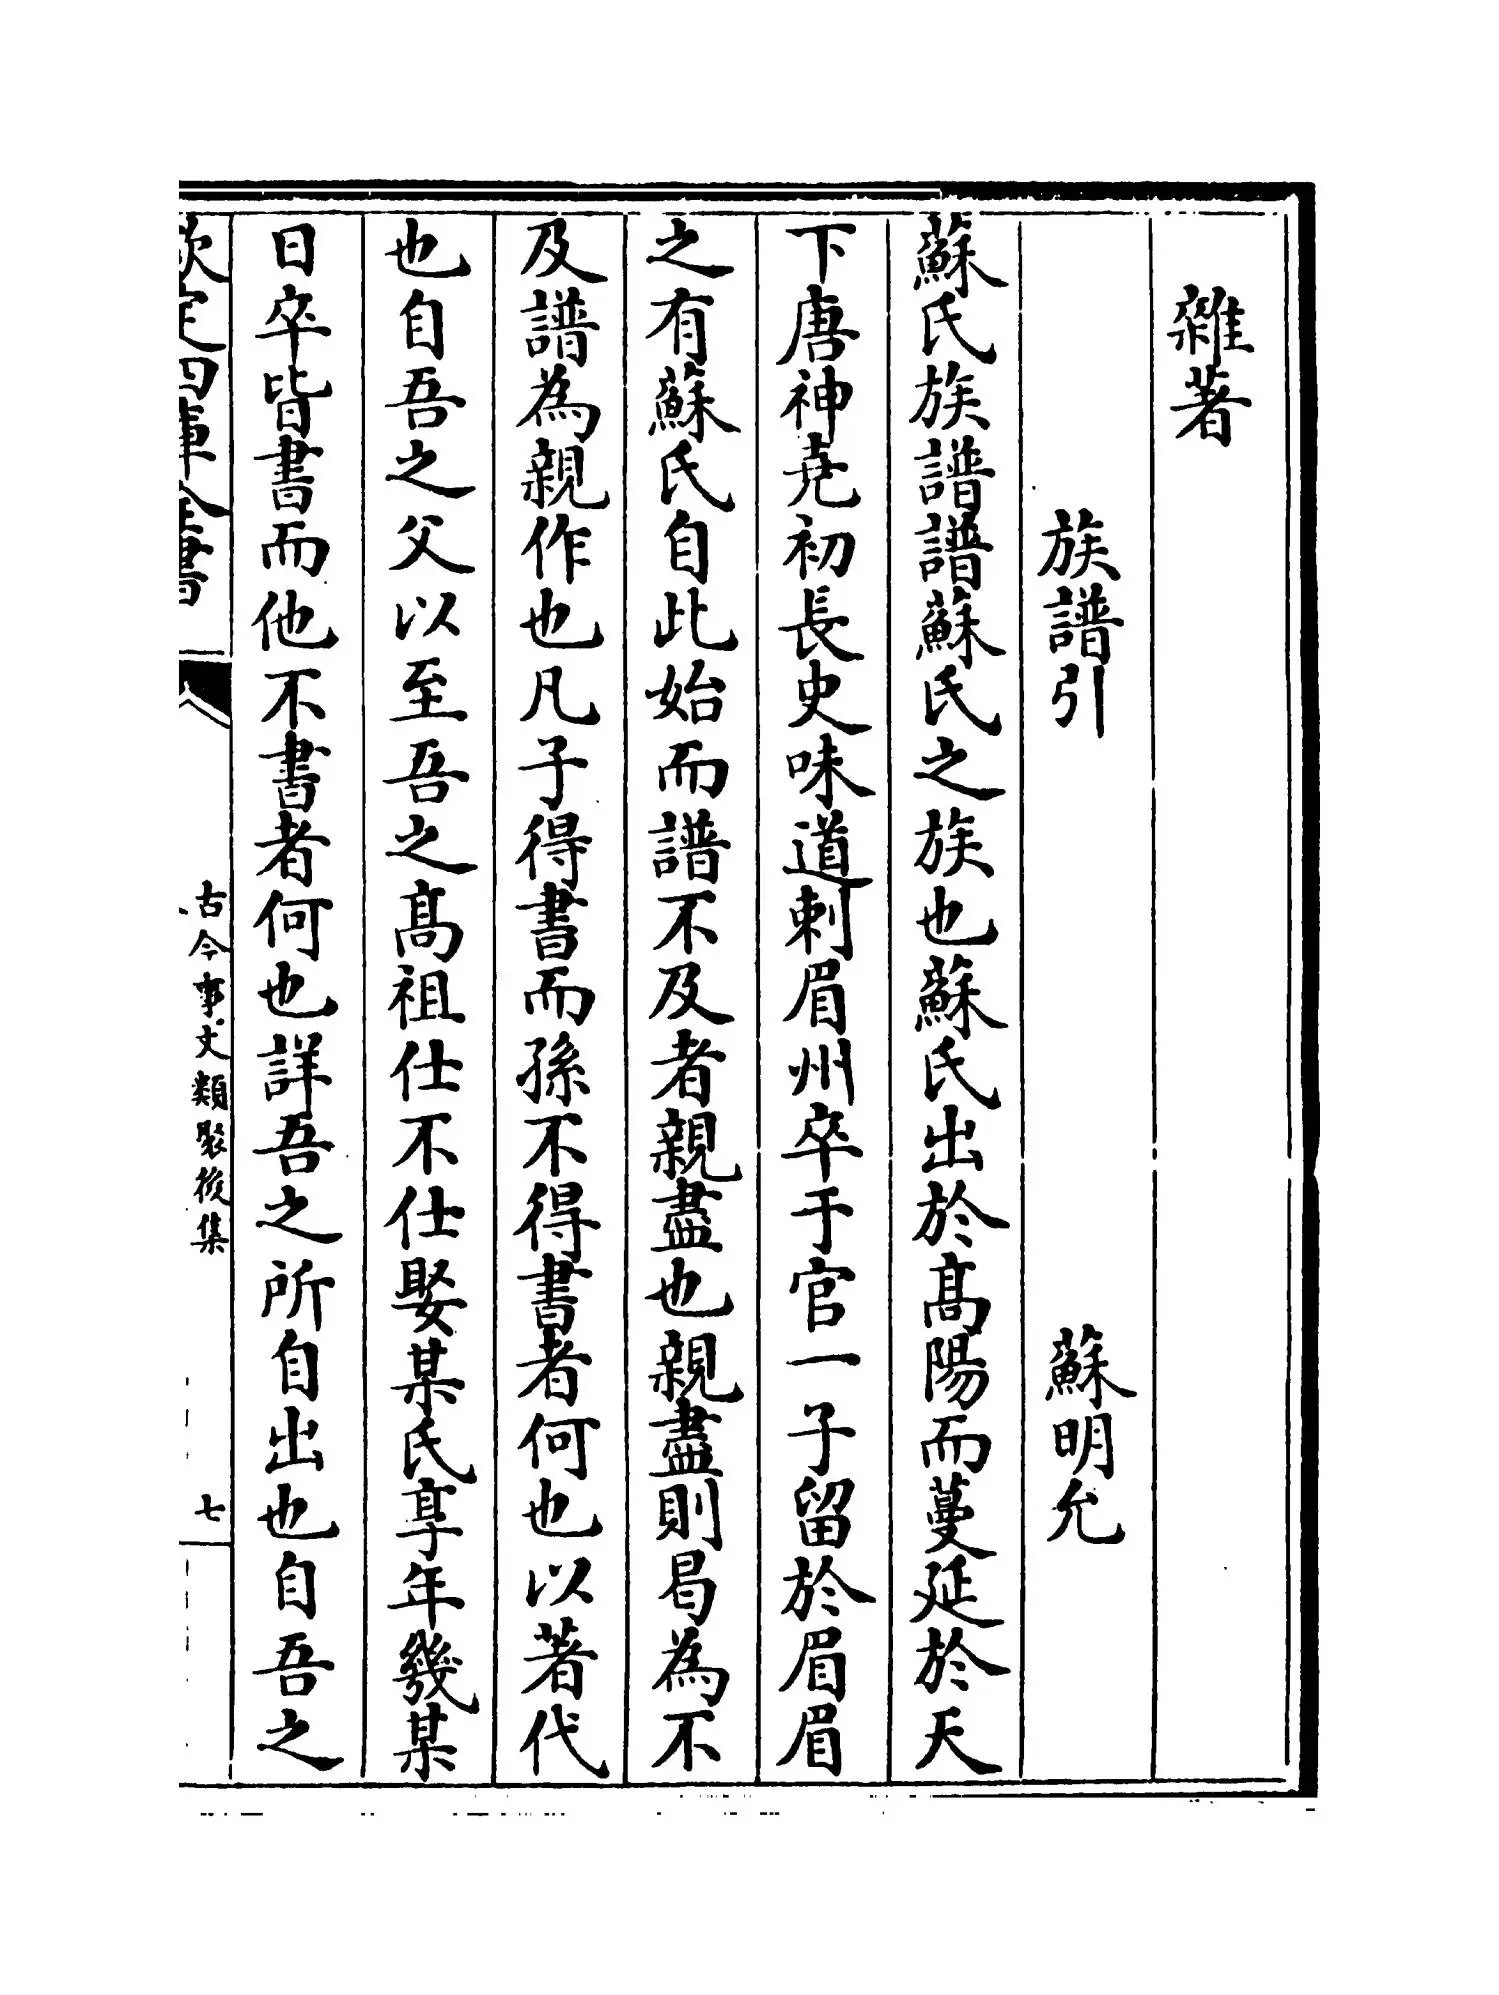 雜著
族譜引 蘇明允
蘇氏族譜譜蘇氏之族也蘇氏出於髙陽而蔓延於天
下唐神堯初長史味道刺眉州卒于官一子留於眉眉
之有蘇氏自此始而譜不及者親盡也親盡則曷為不
及譜為親作也凡子得書而孫不得書者何也以著代
也自吾之父以至吾之髙祖仕不仕娶某氏享年幾某
日卒皆書而他不書者何也詳吾之所自出也自吾之
欽定四庫全書
古今事文類聚後集
七